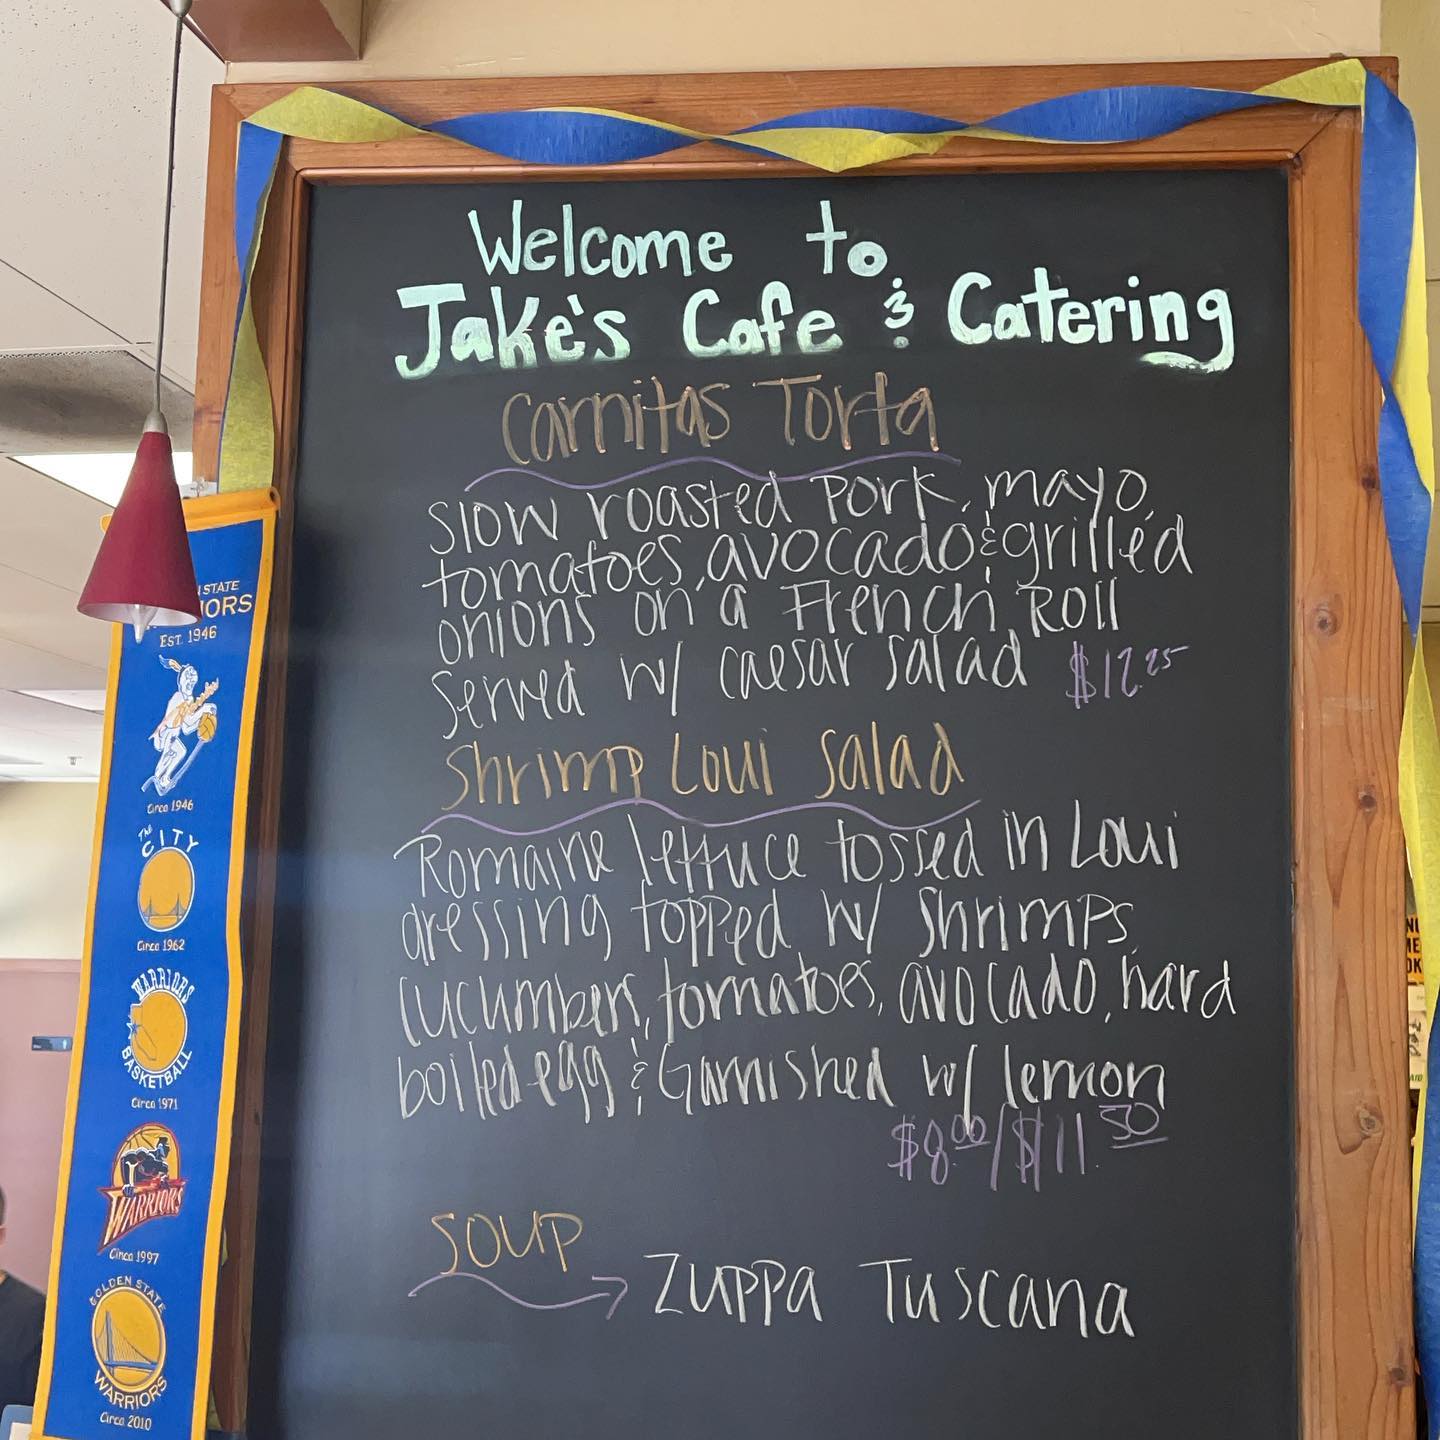 Welcome to
Jake's Cafe & Catering
Carnitas Torta
Slow roasted pork, mayo,
tomatoes, avocado & grilled
onions on a French Roll
Served w/ caesar salad $12.25
Shrimp Loui Salad
Romaine lettuce tossed in Loui
dressing topped w/ shrimps,
cucumbers, tomatoes, avocado, hard
boiled egg & Garnished w/ lemon
$8.00/$11.50
SOUP
Zuppa Tuscana
STATE
EST. 1946
Circa 1946
The
CITY
Circa 1962
WARRIORS
BASKETBALL
Circa 1971
WARRIORS
Circa 1997
GOLDEN STATE
WARRIORS
Circa 2010